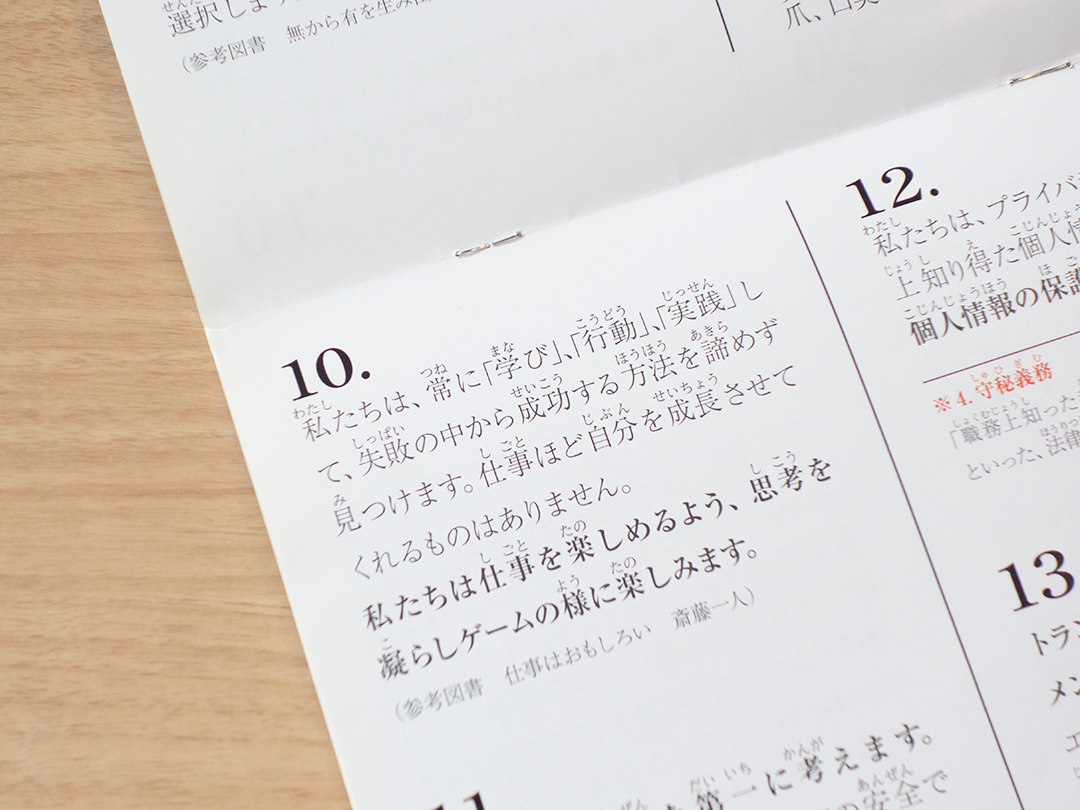 選択しま
（参考図書　無から有を生み
爪、口
10.
私たちは、常に「学び」、「行動」、「実践」し
て、失敗の中から成功する方法を諦めず
見つけます。仕事ほど自分を成長させて
くれるものはありません。
私たちは仕事を楽しめるよう、思考を
凝らしゲームの様に楽しみます。
（参考図書　仕事はおもしろい　斎藤一人）
11
第一に考えます。
安全で
12.
私たちは、プライバ
上知り得た個人情
個人情報の保護
※4.守秘義務
「職務上知った
といった、法律
13
トラン
メン
エ